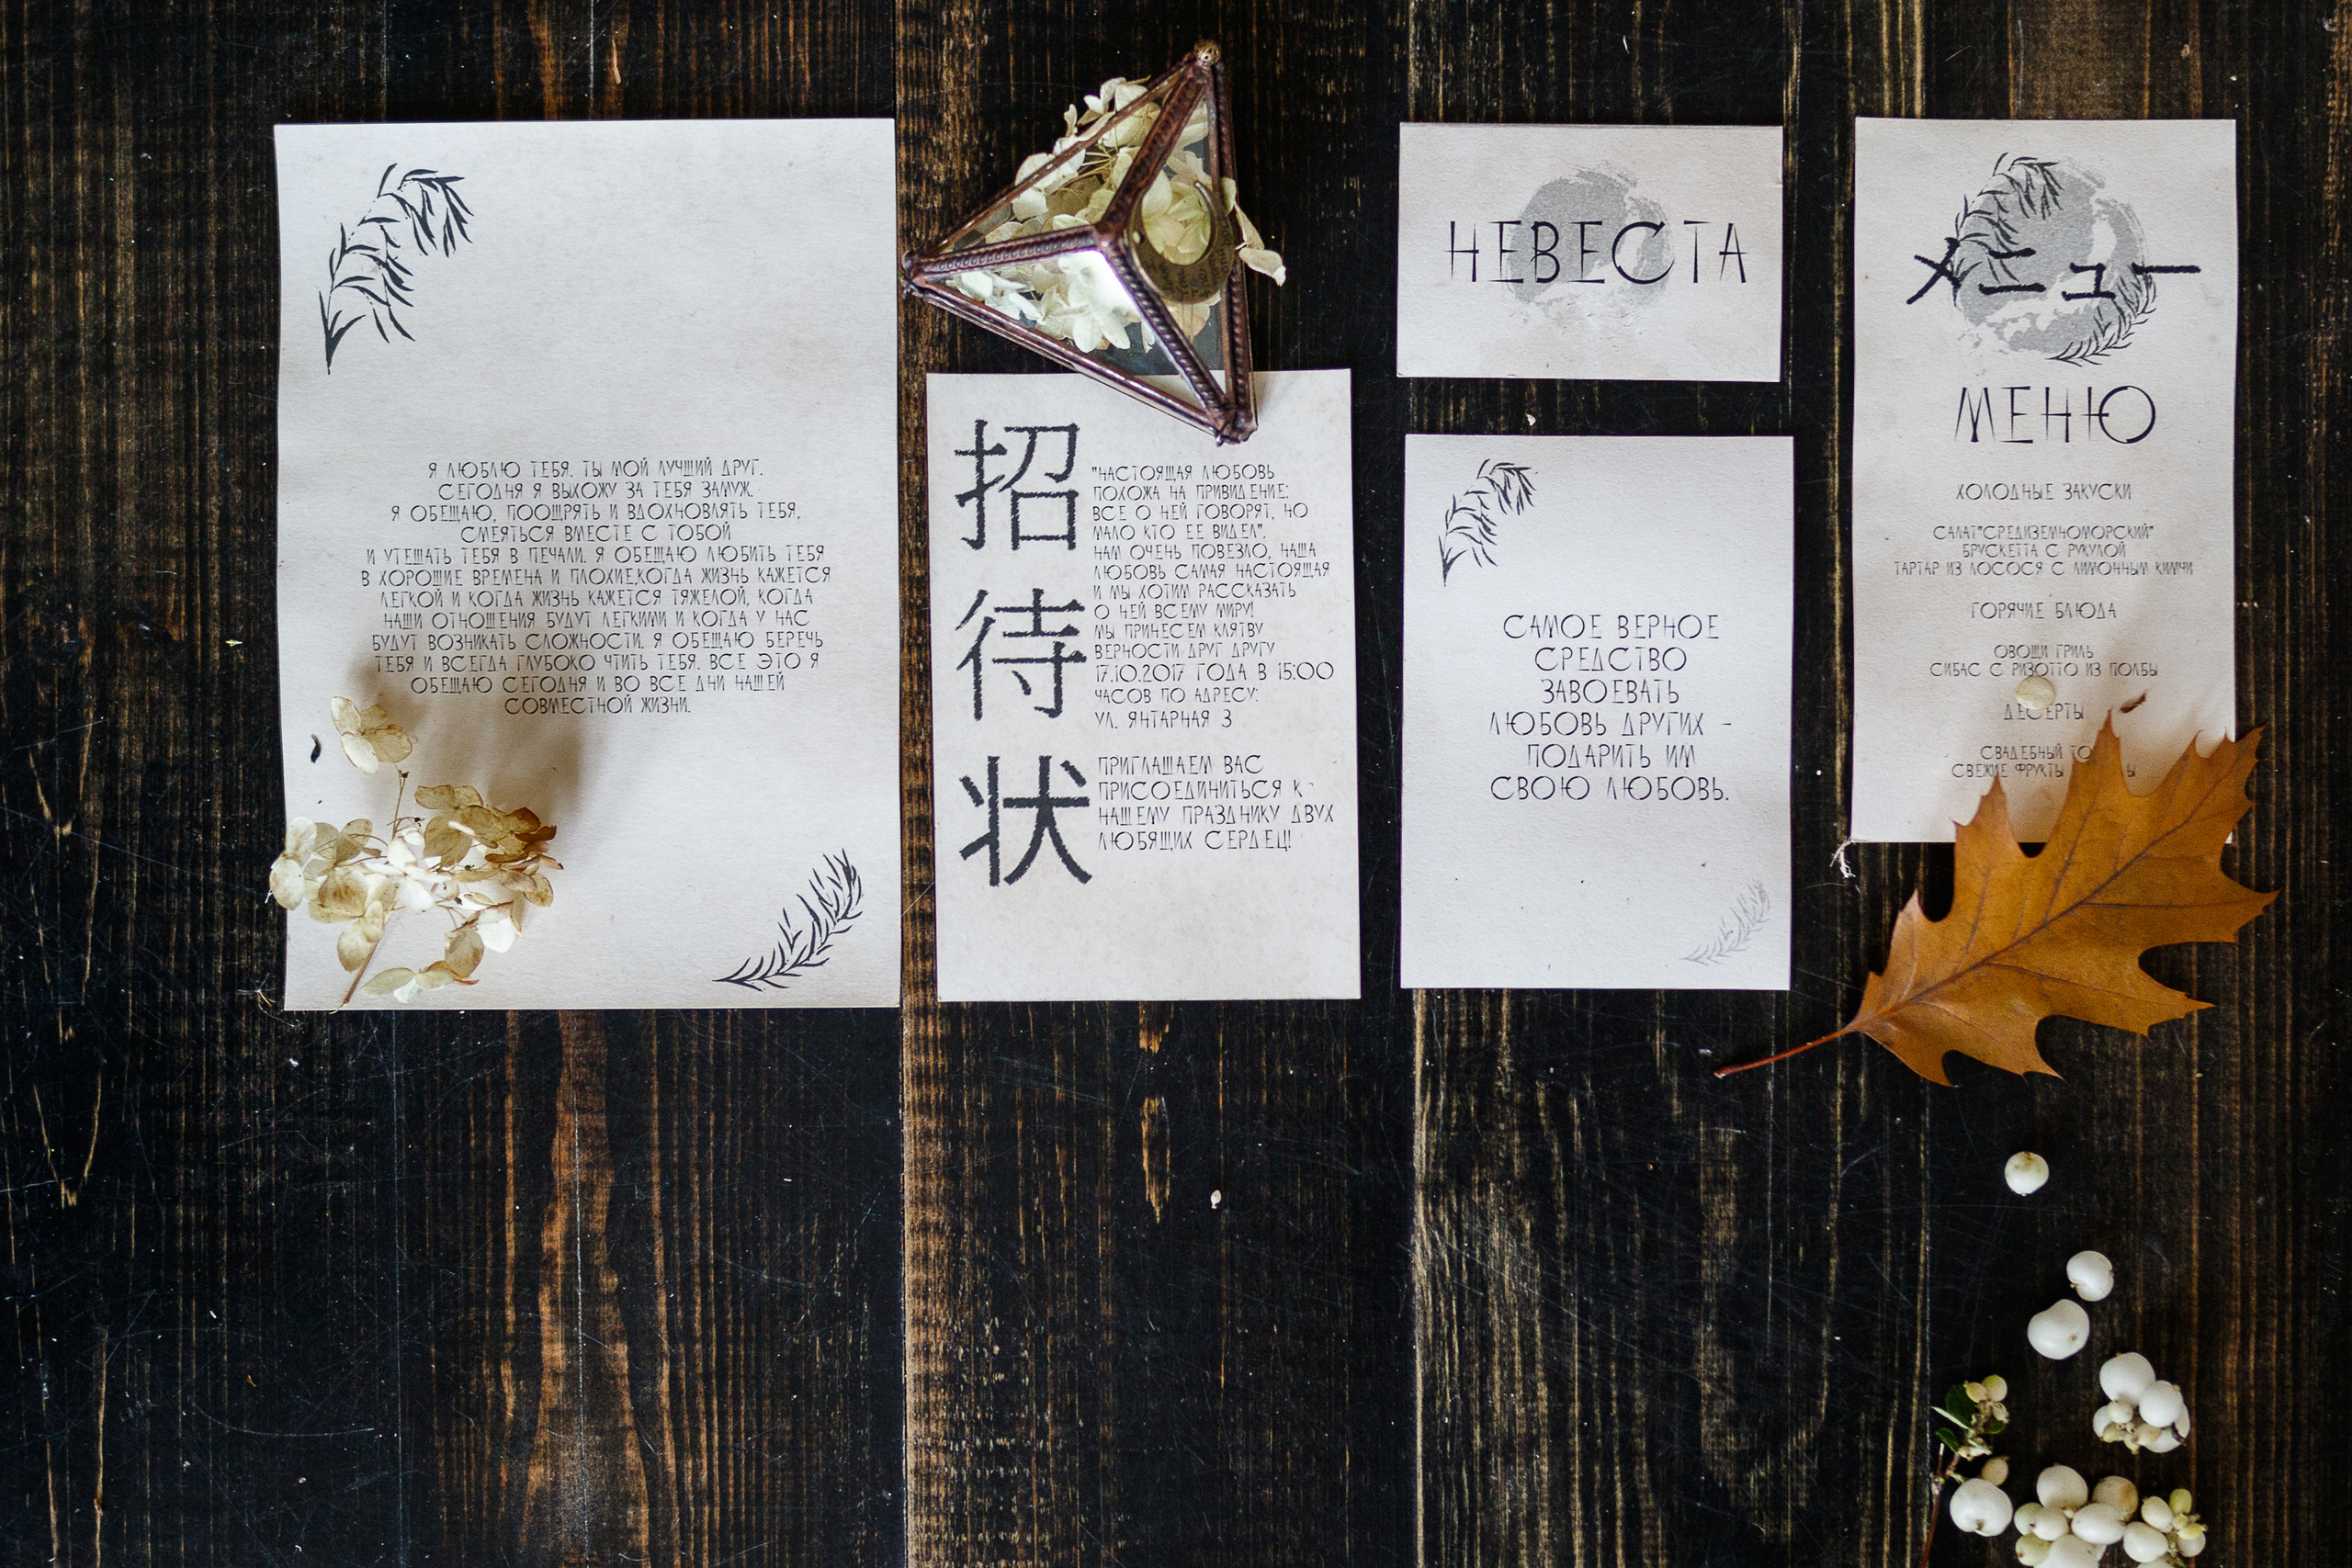 Я ЛЮБЛЮ ТЕБЯ. ТЫ МОЙ ЛУЧШИЙ ДРУГ.
СЕГОДНЯ Я ВЫХОЖУ ЗА ТЕБЯ ЗАМУЖ.
Я ОБЕЩАЮ, ПООЩРЯТЬ И ВДОХНОВЛЯТЬ ТЕБЯ,
СМЕЯТЬСЯ ВМЕСТЕ С ТОБОЙ
И УТЕШАТЬ ТЕБЯ В ПЕЧАЛИ. Я ОБЕЩАЮ ЛЮБИТЬ ТЕБЯ
В ХОРОШИЕ ВРЕМЕНА И ПЛОХИЕ,КОГДА ЖИЗНЬ КАЖЕТСЯ
ЛЕГКОЙ И КОГДА ЖИЗНЬ КАЖЕТСЯ ТЯЖЕЛОЙ, КОГДА
НАШИ ОТНОШЕНИЯ БУДУТ ЛЕГКИМИ И КОГДА У НАС
БУДУТ ВОЗНИКАТЬ СЛОЖНОСТИ. Я ОБЕЩАЮ БЕРЕЧЬ
ТЕБЯ И ВСЕГДА ГЛУБОКО ЧТИТЬ ТЕБЯ. ВСЕ ЭТО Я
ОБЕЩАЮ СЕГОДНЯ И ВО ВСЕ ДНИ НАШЕЙ
СОВМЕСТНОЙ ЖИЗНИ.
招待状
"НАСТОЯЩАЯ ЛЮБОВЬ
ПОХОЖА НА ПРИВИДЕНИЕ:
ВСЕ О НЕЙ ГОВОРЯТ, НО
МАЛО КТО ЕЕ ВИДЕЛ".
НАМ ОЧЕНЬ ПОВЕЗЛО, НАША
ЛЮБОВЬ САМАЯ НАСТОЯЩАЯ
И МЫ ХОТИМ РАССКАЗАТЬ
О НЕЙ ВСЕМУ МИРУ!
МЫ ПРИНЕСЕМ КЛЯТВУ
ВЕРНОСТИ ДРУГ ДРУГУ
17.10.2017 ГОДА В 15:00
ЧАСОВ ПО АДРЕСУ:
УЛ. ЯНТАРНАЯ 3
ПРИГЛАШАЕМ ВАС
ПРИСОЕДИНИТЬСЯ К
НАШЕМУ ПРАЗДНИКУ ДВУХ
ЛЮБЯЩИХ СЕРДЕЦ!
НЕВЕСТА
САМОЕ ВЕРНОЕ
СРЕДСТВО
ЗАВОЕВАТЬ
ЛЮБОВЬ ДРУГИХ -
ПОДАРИТЬ ИМ
СВОЮ ЛЮБОВЬ.
メニュー
МЕНЮ
ХОЛОДНЫЕ ЗАКУСКИ
САЛАТ"СРЕДИЗЕМНОМОРСКИЙ"
БРУСКЕТТА С РУКУЛОЙ
ТАРТАР ИЗ ЛОСОСЯ С ЛИМОННЫМ КИМЧИ
ГОРЯЧИЕ БЛЮДА
ОВОЩИ ГРИЛЬ
СИБАС С РИЗОТТО ИЗ ПОЛБЫ
ДЕСЕРТЫ
СВАДЕБНЫЙ
СВЕЖИЕ ФРУКТЫ